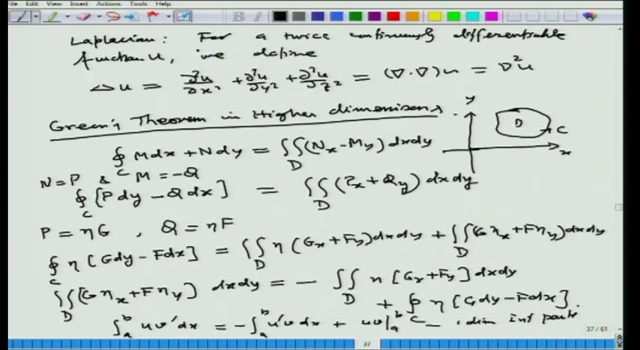 File Edit View Insert Actions Tools Help
Laplacian: For a twice continuously differentiable
function u, we define
Δu = ∂²u/∂x² + ∂²u/∂y² + ∂²u/∂z² = (∇·∇)u = ∇²u
Green's Theorem in Higher dimensions
y
D
C
x
∮_C Mdx + Ndy = ∬_D (N_x - M_y) dxdy
N = P & M = -Q
∮_C [Pdy - Qdx] = ∬_D (P_x + Q_y) dxdy
P = ηG, Q = ηF
∮_C η[Gdy - Fdx] = ∬_D η(G_x + F_y) dxdy + ∬_D (Gη_x + Fη_y) dxdy
∬_D (Gη_x + Fη_y) dxdy = - ∬_D η[G_x + F_y] dxdy
+ ∮_C η[Gdy - Fdx].
∫_a^b uv'dx = -∫_a^b u'v dx + uv|_a^b dim int parts
37 / 61
37